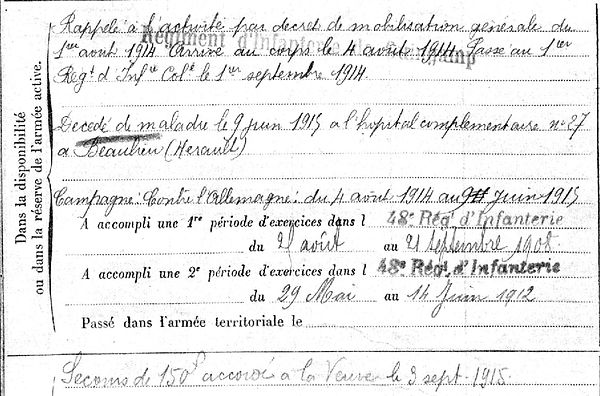 Dans la disponibilité
ou dans la réserve de l'armée active.
Rappelé à l'activité par decret de mobilisation générale du
1er aout 1914 Arrivé au corps le 4 aout 1914. Passé au 1er
Régiment d'Infanterie
Regt d'Infie Colle le 1er septembre 1914.
Décedé de maladie le 9 juin 1915 a l'hopital complementaire no 27
a Beaulieu (Herault)
Campagne: Contre l'Allemagne: du 4 aout 1914 au 9 Juin 1915
A accompli une 1re période d'exercices dans l 48e Régt d'Infanterie
du 2 août au 21 Septembre 1908.
A accompli une 2e période d'exercices dans l 48e Régt d'Infanterie
du 29 Mai au 14 Juin 1912
Passé dans l'armée territoriale le
Secours de 150f accordé a la Veuve le 3 sept. 1915.